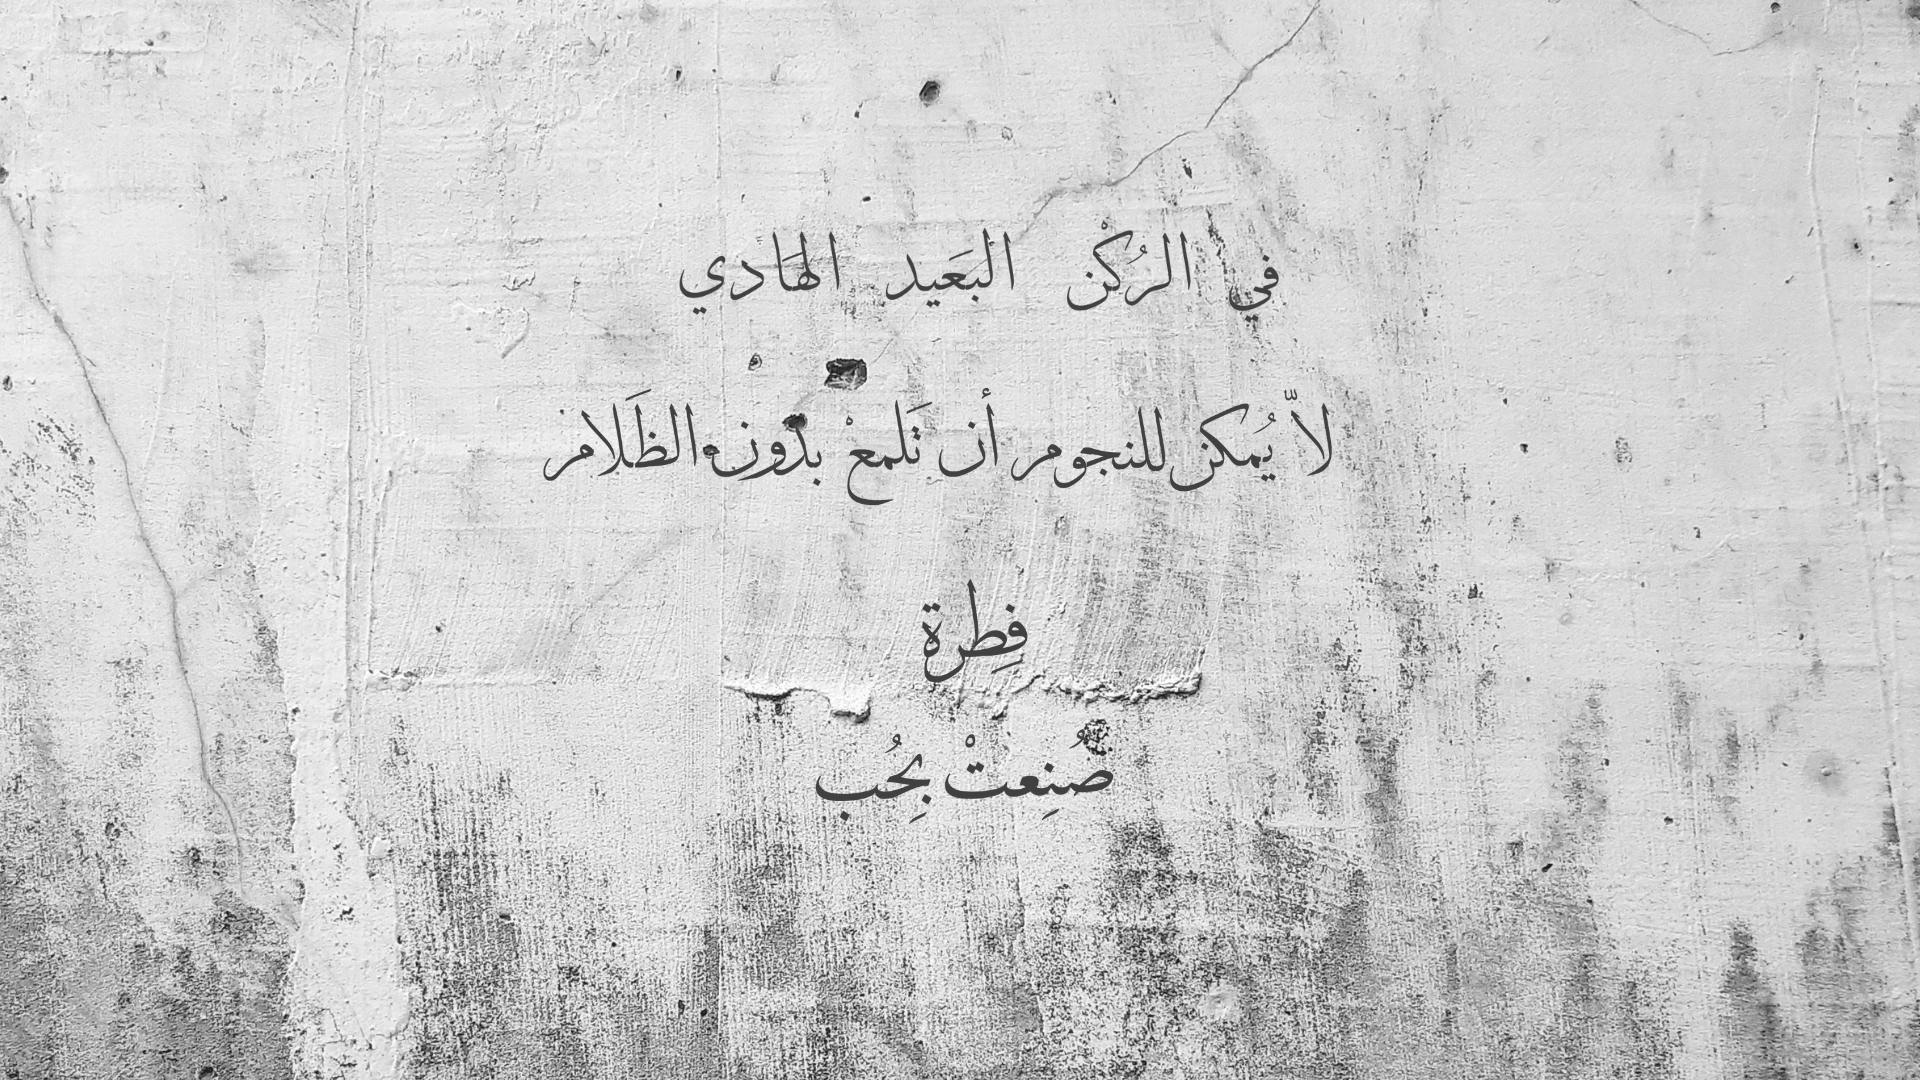 في الرُكْن البَعيد الهَادي
لاّ يُمكن للنجوم أن تَلمعْ بدون الظَلام
فِطرة
صُنِعتْ بِحُب